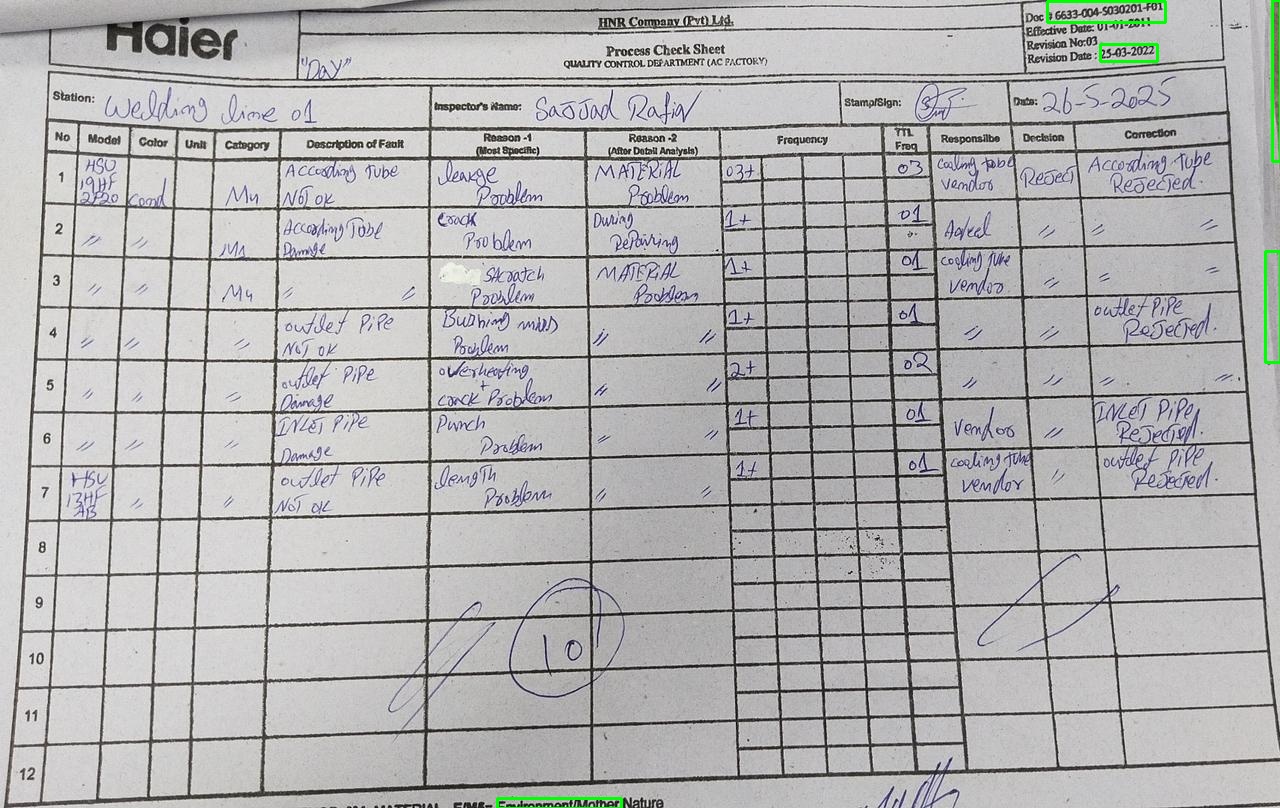 Haier
"DAY"
HNR Company (Pvt) Ltd.
Process Check Sheet
QUALITY CONTROL DEPARTMENT (AC FACTORY)
Doc # 6633-004-S030201-F01
Effective Date: 01-01-2011
Revision No:03
Revision Date : 25-03-2022
Station: Welding line 01 Inspector's Name: SaJJad Rafiq Stamp/Sign: Date: 26-5-2025
No Model Color Unit Category Description of Fault Reason -1 (Most Specific) Reason -2 (After Detail Analysis) Frequency TTL Freq Responsilbe Decision Correction
1 HSU 19HF cond M4 According Tube NOT OK leakge Problem MATERIAL Problem 03+ 03 cooling tube vendor Reject According Tube Rejected.
2 〃 〃 M1 According Tube Damage crack Problem During Repairing 1+ 01 〃 〃 〃
3 〃 〃 M4 〃 〃 SKcratch Problem MATERIAL Problem 1+ 01 cooling tube vendor 〃 〃 〃
4 〃 〃 〃 outlet PiPe NOT OK Bushing miss Problem 〃 〃 1+ 01 〃 〃 outlet PiPe Rejected.
5 〃 〃 〃 outlet PiPe Damage overheating + crack Problem 〃 〃 2+ 02 〃 〃 〃 〃
6 〃 〃 〃 INLET PiPe Damage Punch Problem 〃 〃 1+ 01 Vendor 〃 INLET PiPe Rejected.
7 HSU 13HF 〃 〃 outlet PiPe NOT OK length Problem 〃 〃 1+ 01 cooling tube vendor 〃 outlet PiPe Rejected.
8
9
10
10
11
12
MATERIAL Environment/Mother Nature